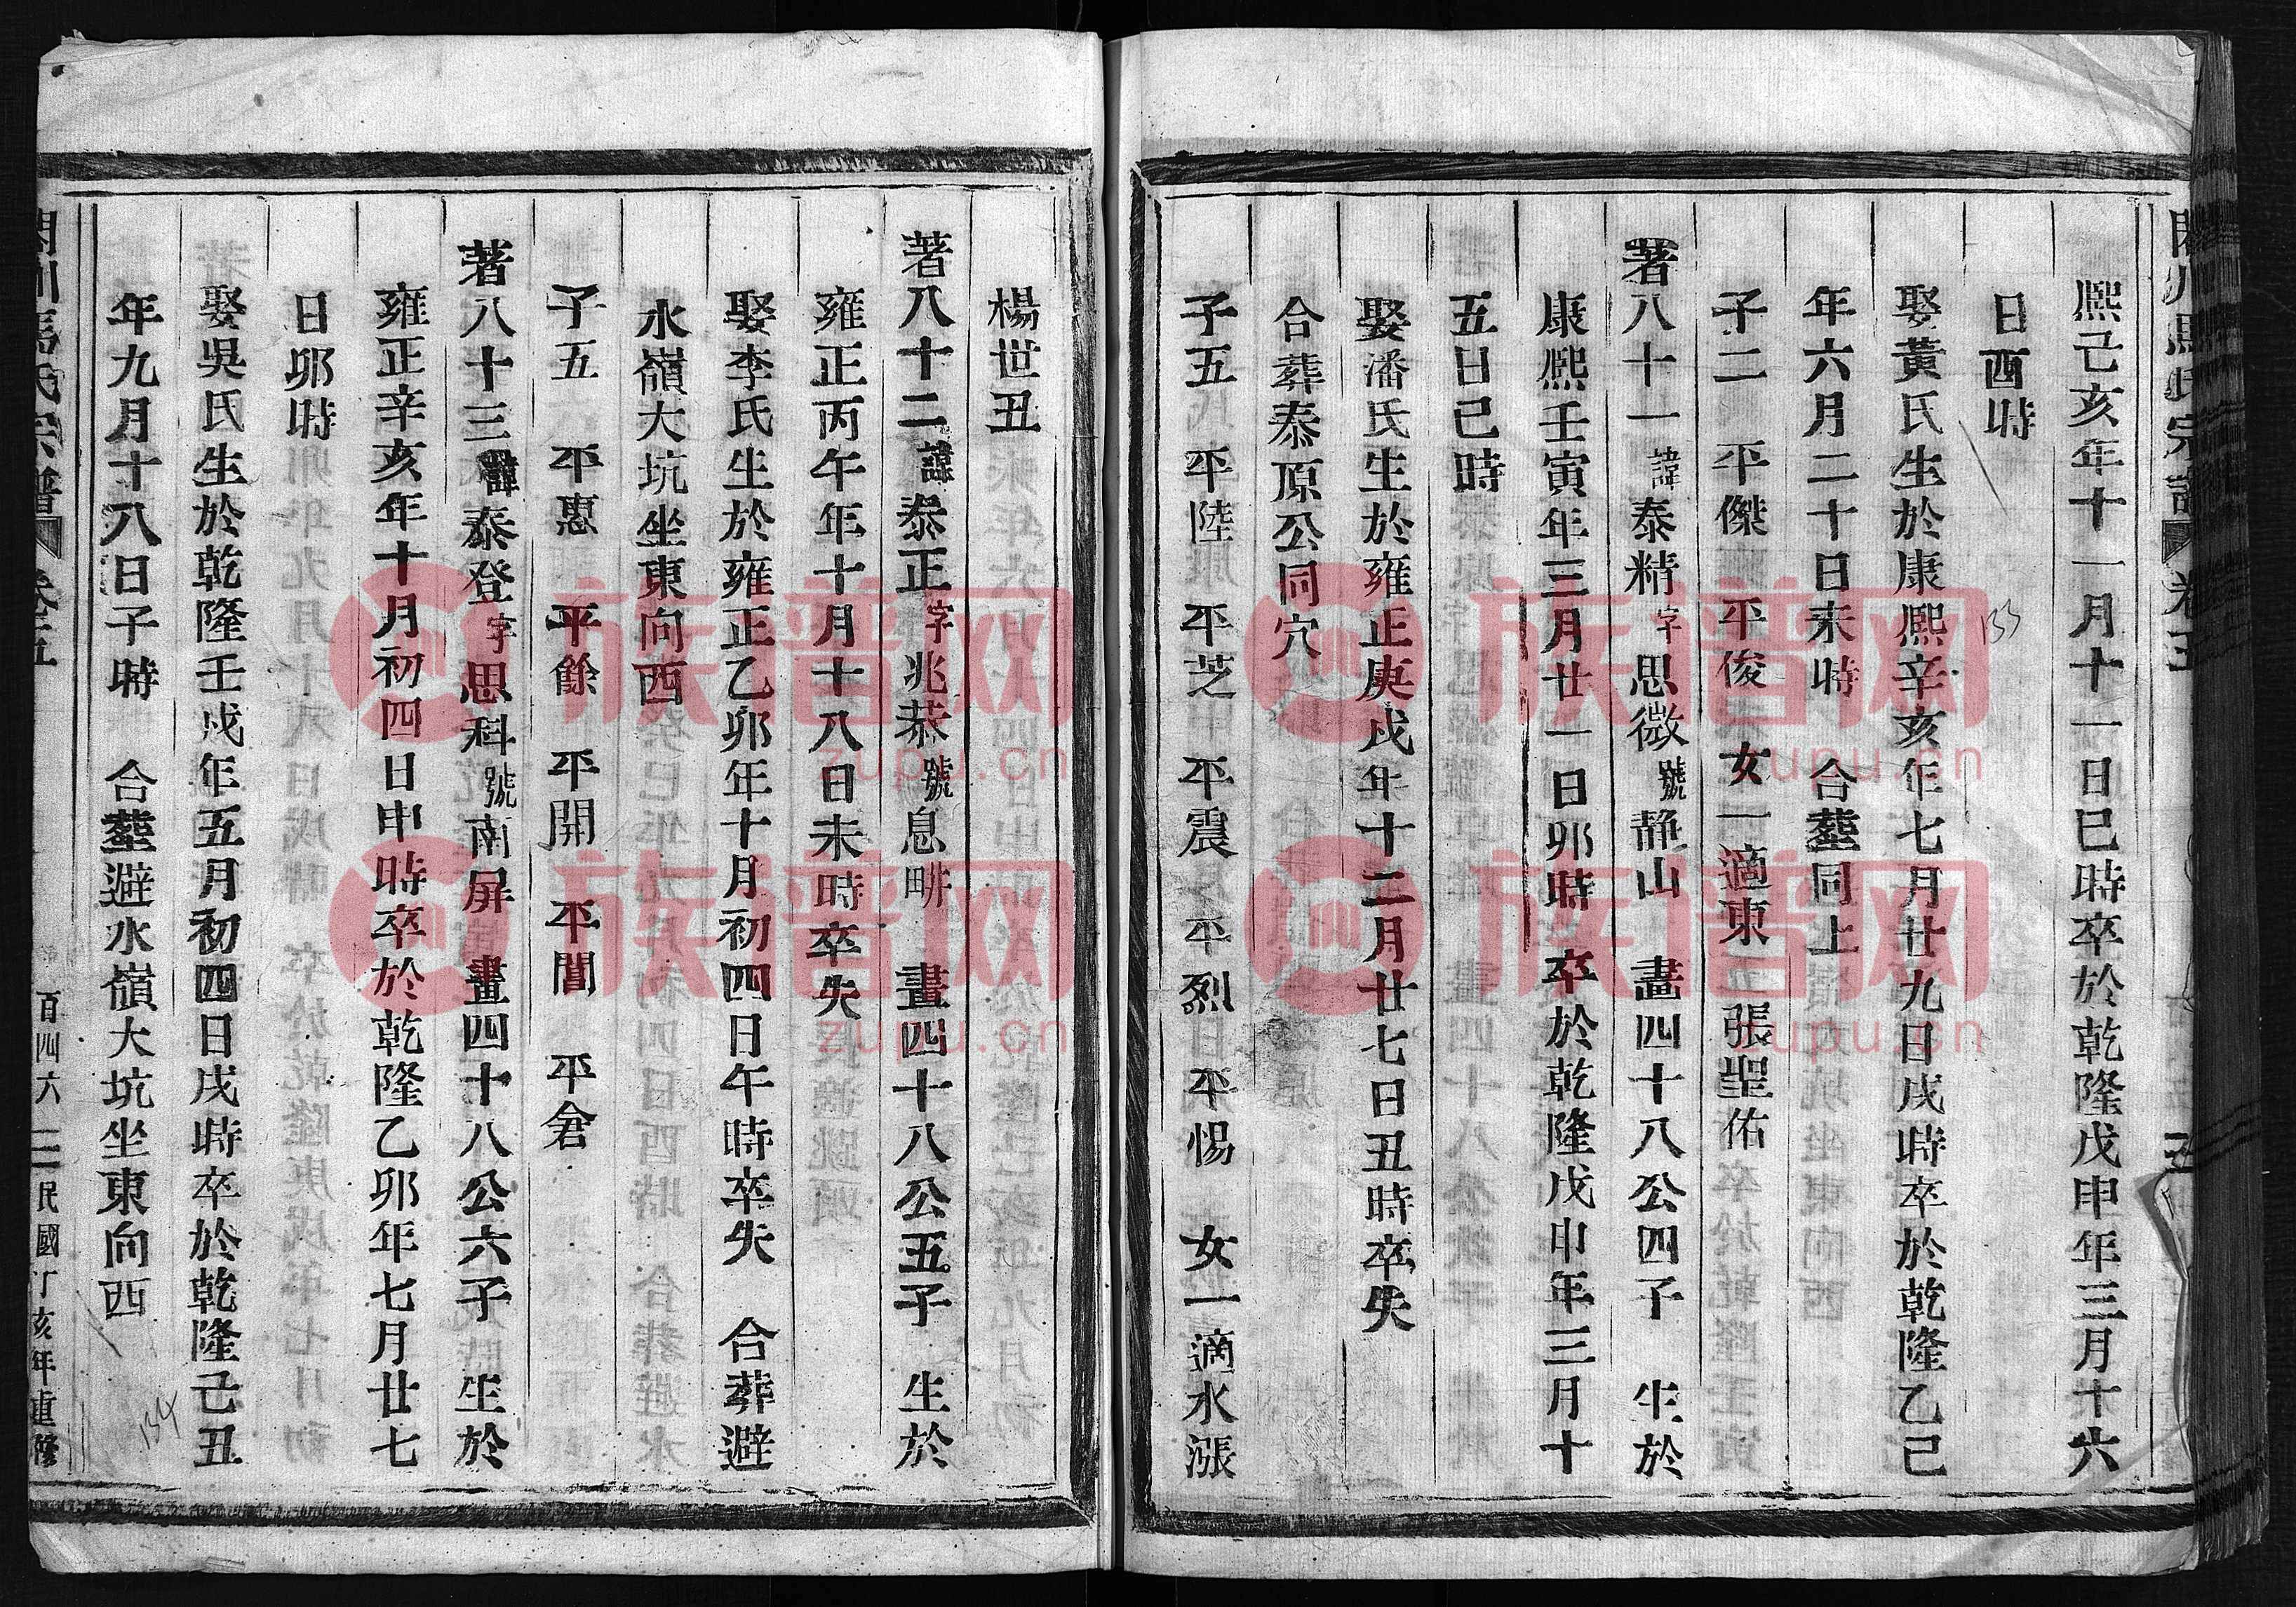 熙己亥年十一月十一日巳時卒於乾隆戊申年三月十六
日酉時
娶黃氏生於康熙辛亥年七月廿九日戌時卒於乾隆乙己
年六月二十日未時 合塟同上
子二 平傑 平俊 女一適東 張聖佑
著八十一諱泰精字思微號静山 畵四十八公四子 生於
康熙壬寅年三月廿一日卯時 卒於乾隆戊申年三月十
五日已時
娶潘氏生於雍正庚戌年十二月廿七日丑時卒失
合葬泰原公同穴
子五 平陸 平芝 平震 平烈 平惕 女一適水漲
楊世丑
著八十二諱泰正字兆恭號息畊 畵四十八公五子 生於
雍正丙午年十月十八日未時卒失
娶李氏生於雍正乙卯年十月初四日午時卒失 合葬避
水嶺大坑坐東向西
子五 平惠 平餘 平開 平誾 平倉
著八十三諱泰登字思科號南屏 畵四十八公六子 生於
雍正辛亥年十月初四日申時卒於乾隆乙卯年七月廿七
日卯時
娶吳氏生於乾隆壬戌年五月初四日戌時卒於乾隆己丑
年九月十八日子時 合塟避水嶺大坑坐東向西
馬氏宗譜 卷五 百四六 民國丁亥年重修
133
134
族谱网
zupu.cn
族谱网
zupu.cn
族谱网
zupu.cn
族谱网
zupu.cn